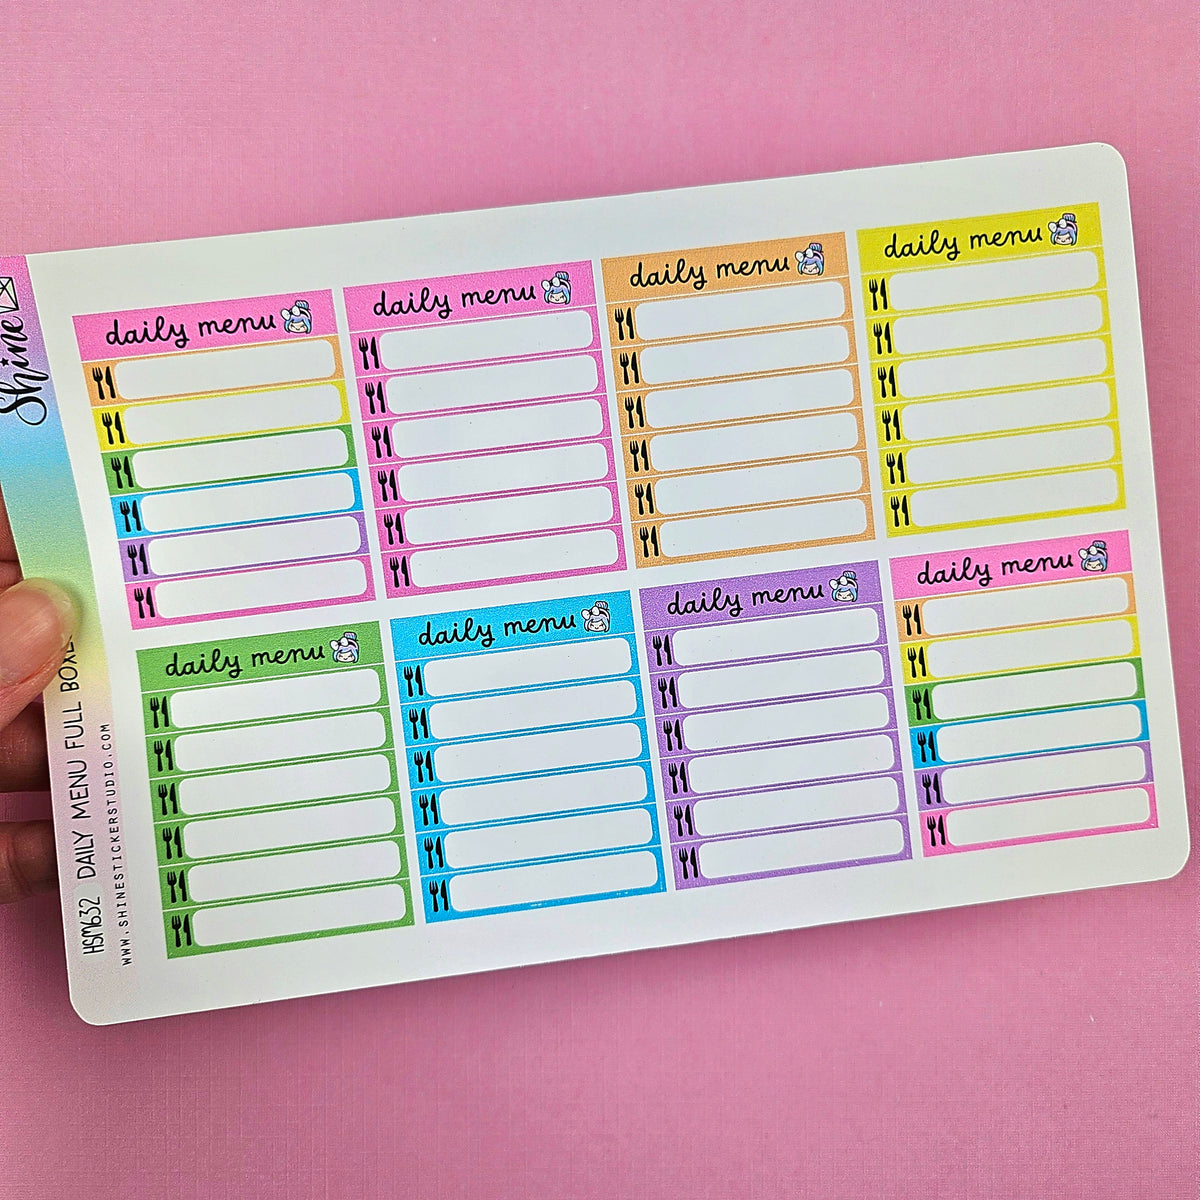 Shine
HSM632 DAILY MENU FULL BOXE
WWW.SHINESTICKERSTUDIO.COM
daily menu
daily menu
daily menu
daily menu
daily menu
daily menu
daily menu
daily menu